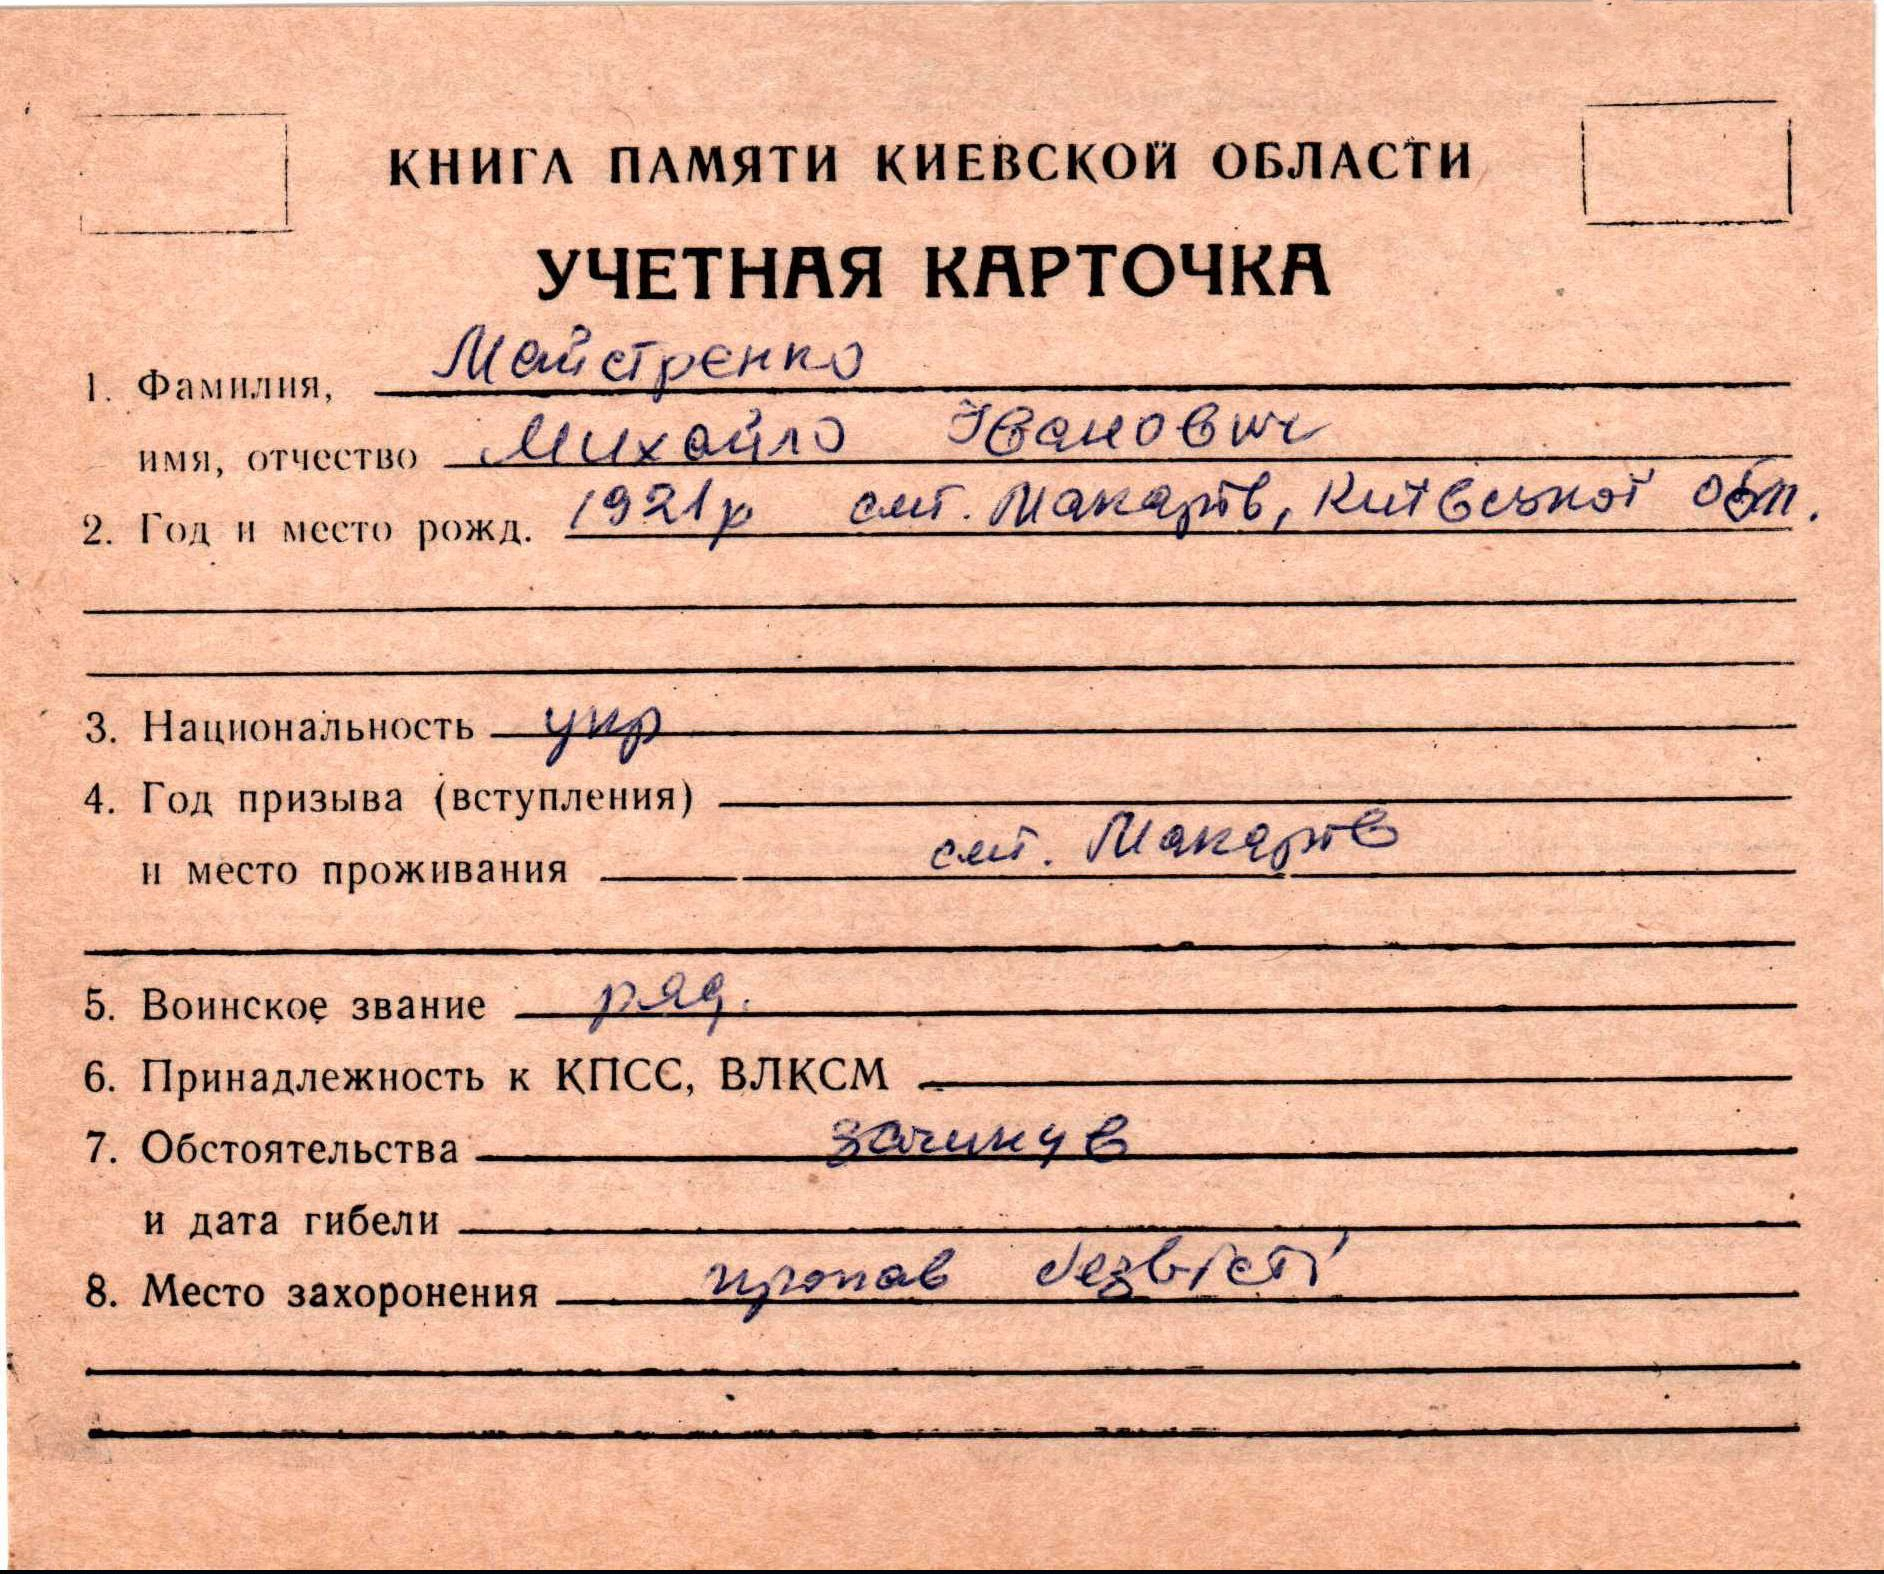 КНИГА ПАМЯТИ КИЕВСКОЙ ОБЛАСТИ
УЧЕТНАЯ КАРТОЧКА
1. Фамилия, Майстренко
имя, отчество Михайло Іванович
2. Год и место рожд. 1921р смт. Макарів, Київської обл.
3. Национальность укр
4. Год призыва (вступления)
и место проживания смт. Макарів
5. Воинское звание ряд.
6. Принадлежность к КПСС, ВЛКСМ
7. Обстоятельства загинув
и дата гибели
8. Место захоронения пропав безвісті